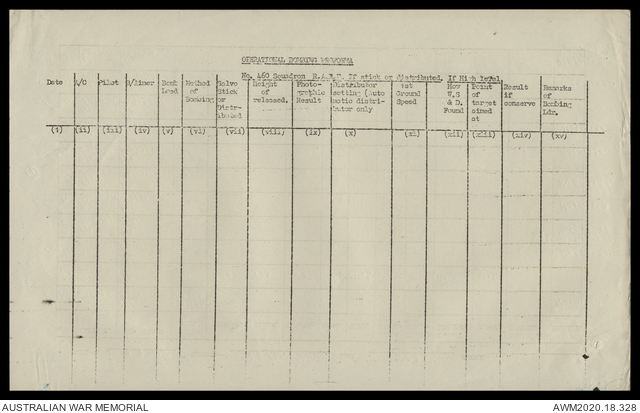 OPERATIONAL BOMBING PROFORMA
No. 460 Squadron R.A.A.F. If stick or distributed. If High level.
Date A/C Pilot B/Aimer Bomb Load Method of Bombing Salvo Stick or Distributed Height of released. Photographic Result Distributor setting (Automatic distributor only 1st Ground Speed How W.S & D. Found Point of target aimed at Result if conserve Remarks of Bombing Ldr.
(i) (ii) (iii) (iv) (v) (vi) (vii) (viii) (ix) (x) (xi) (xii) (xiii) (xiv) (xv)
AUSTRALIAN WAR MEMORIAL
AWM2020.18.328